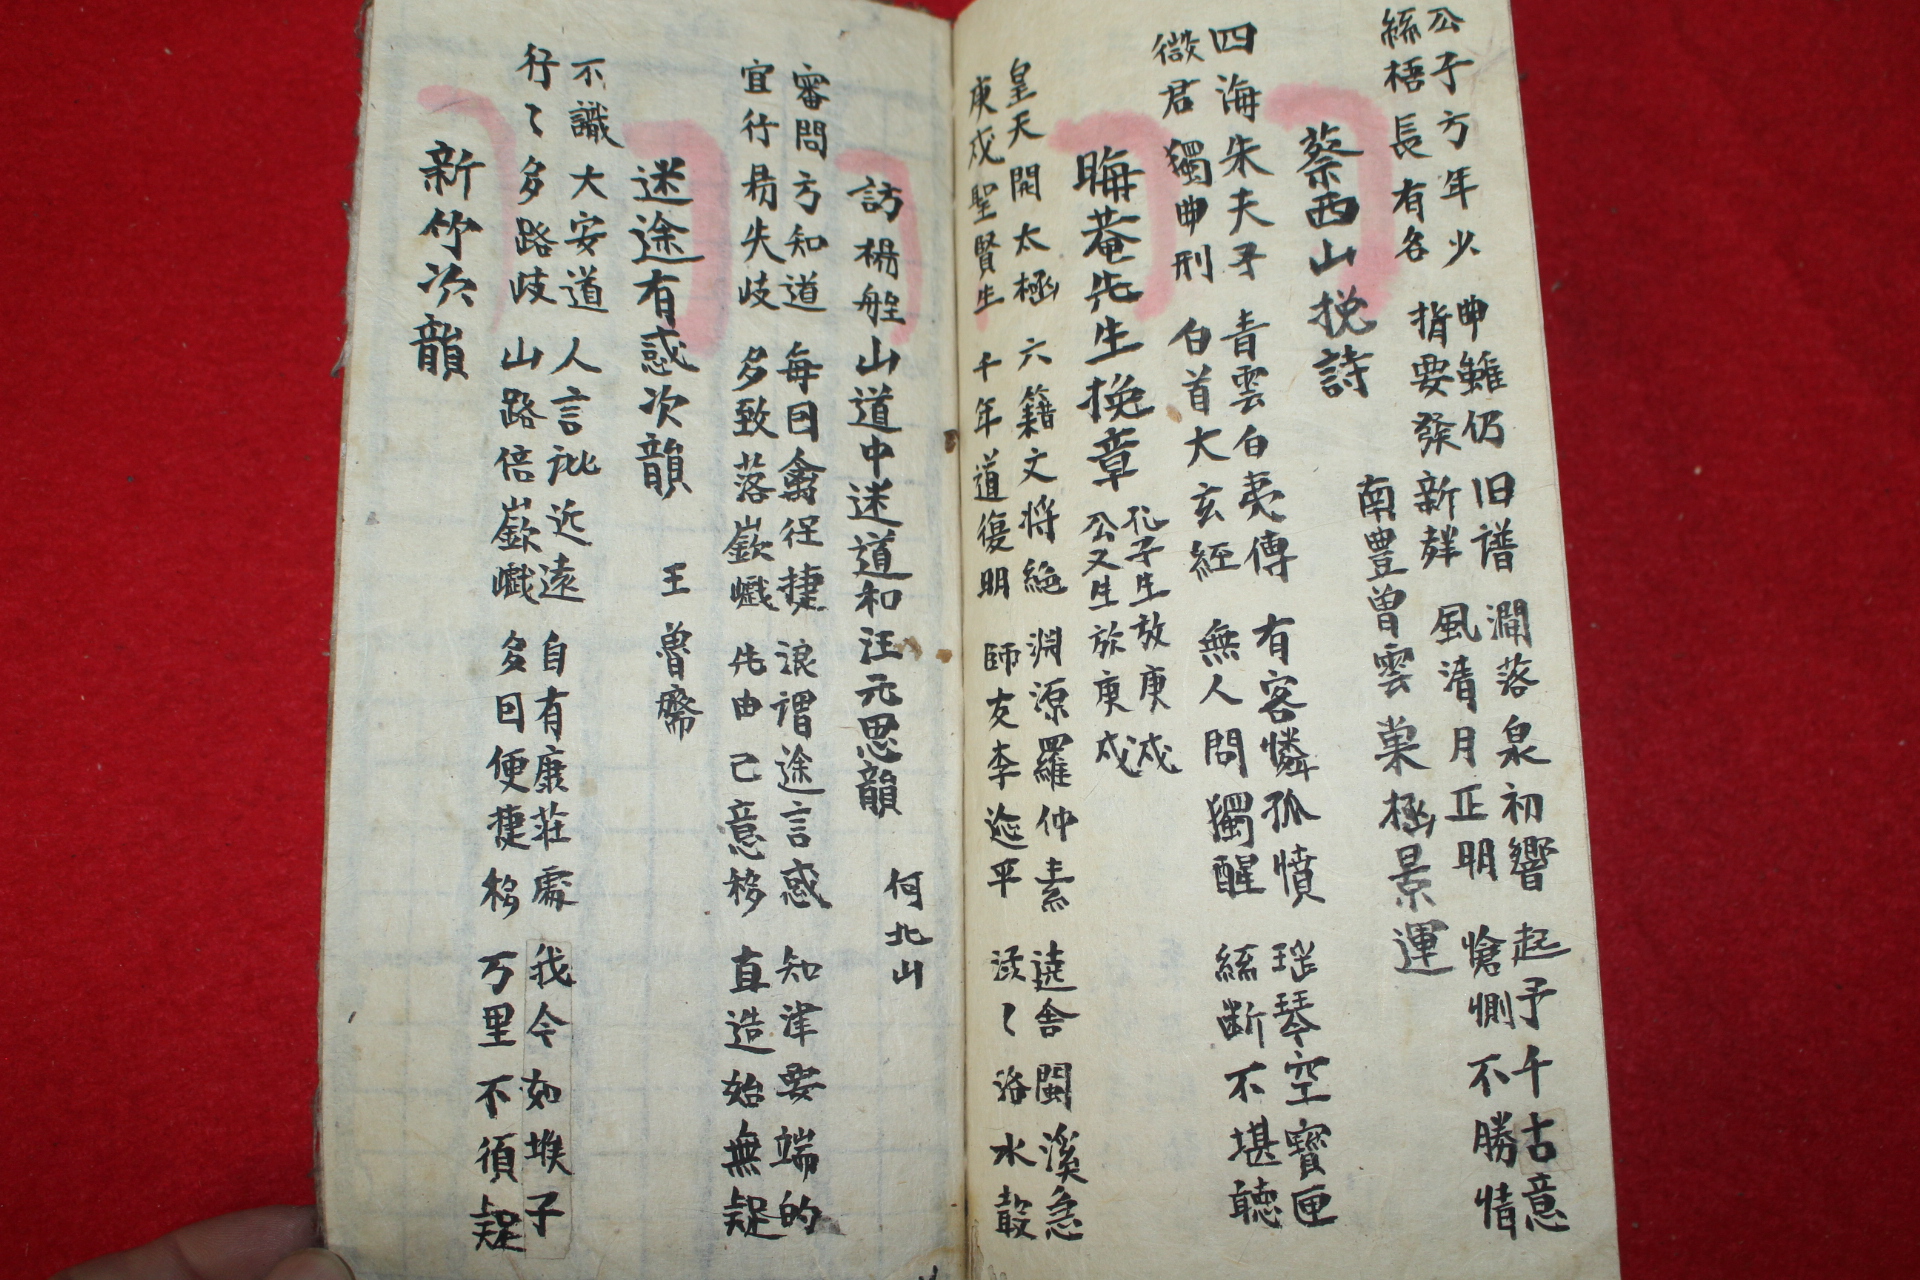 公子方年少 曲雖仍旧譜 澗落泉初響 起予千古意
絲梧長有名 指要發新 風清月正明 愴惻不勝情
南豊曾雲巢極景運
蔡西山挽詩
四海朱夫子 青雲白夷傳 有客憐孤憤 瑶琴空寶匣
徵君獨曲刑 白首大玄経 無人問獨醒 絲断不堪聴
晦菴先生挽章 孔子生於庚戌
公又生於庚戌
皇天開太極 六籍文将絶 淵源羅仲素 遶舎閩溪急
庚戌聖賢生 千年道復明 師友李延平 々洛水
訪楊船山道中迷道和汪元思韻 何北山
審問方知道 每因禽徑捷 浪謂途言惑 知津要端的
宜行易失歧 多致落嶔巇 先由己意移 直造始無疑
迷途有惑次韻 王魯齋
不識大安道 人言訛近遠 自有康莊處 我今如堠子
行々多路歧 山路倍嶔巇 多因便捷移 万里不須疑
新竹次韻